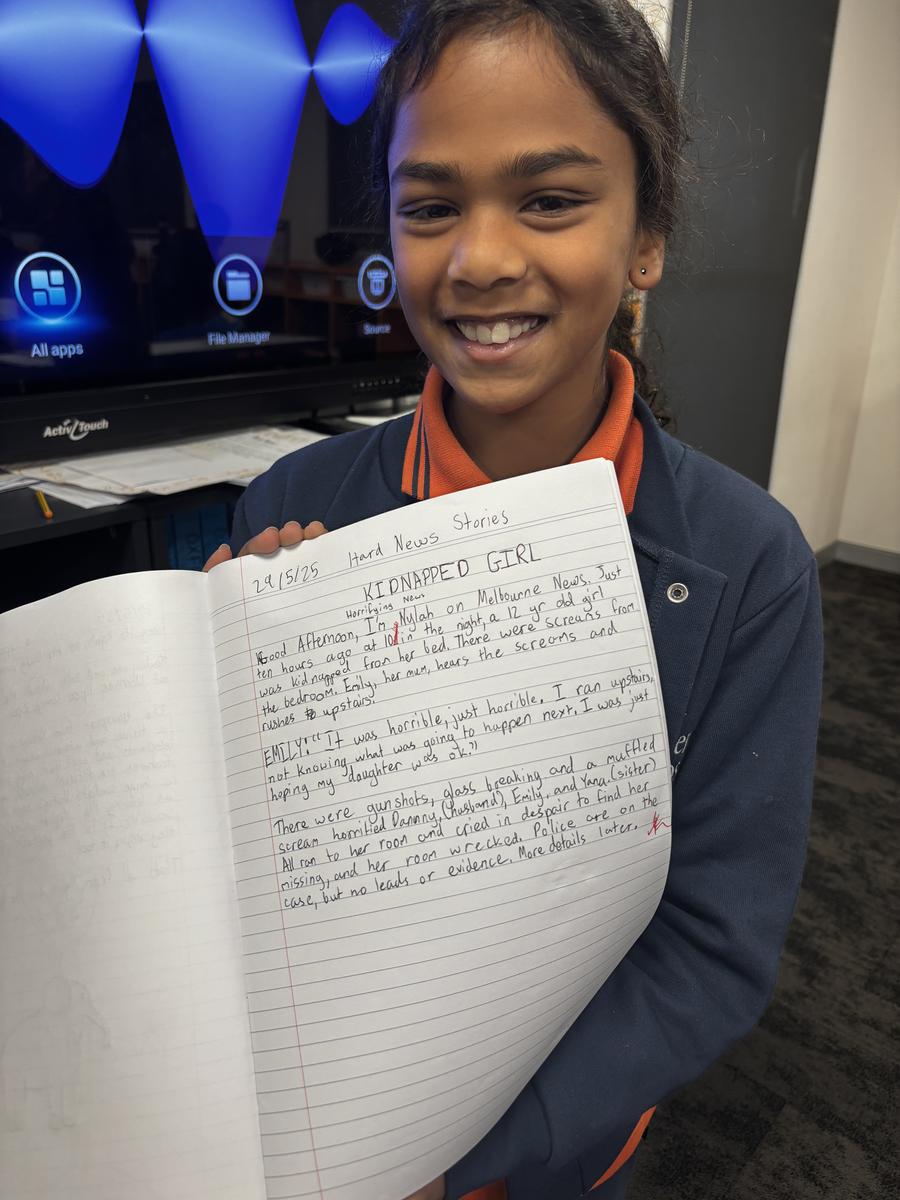 All apps
File Manager
Source
ActivTouch
29/5/25 Hard News Stories
KIDNAPPED GIRL
Horrifying News
Good Afternoon, I'm Nylah on Melbourne News. Just
ten hours ago at 10 in the night, a 12 yr old girl
was kidnapped from her bed. There were screans from
the bedroom. Emily, her mum, hears the screams and
rushes upstairs.
EMILY: "It was horrible, just horrible. I ran upstairs,
not knowing what was going to happen next. I was just
hoping my daughter was ok."
There were gunshots, glass breaking and a muffled
scream horritied Dannny, (husband), Emily, and Yana. (sister)
All ran to her room and cried in despair to find her
missing, and her room wrecked. Police are on the
case, but no leads or evidence. More details later.